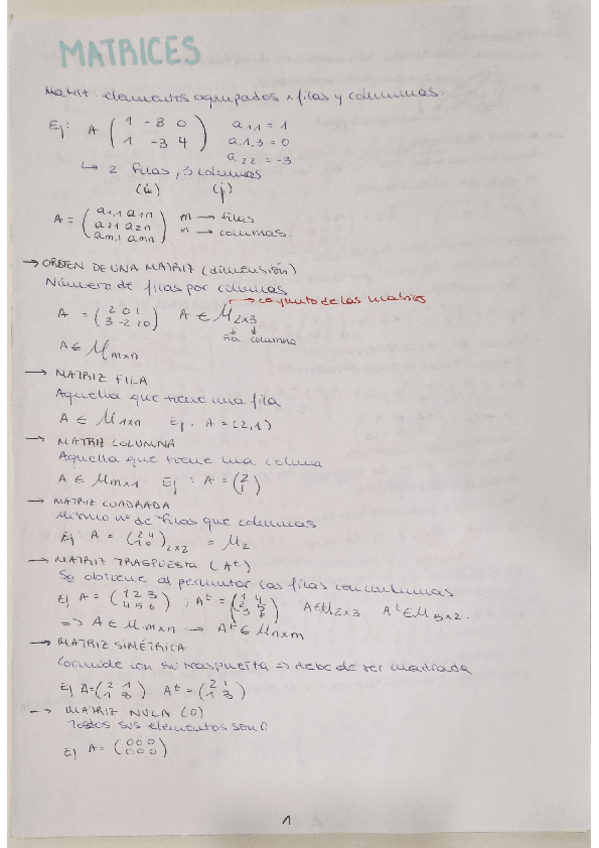 MATRICES
Matriz: elementos agrupados x filas y columnas.
Ej: A ( 1 -3 0 ) a 1,1 = 1
( 1 -3 4 ) a 1,3 = 0
a 22 = -3
↳ 2 filas, 3 columnas
(i) (j)
A = ( a1,1 a1n ) m → filas
( a21 a2n ) n → columnas
( am,1 amn )
→ ORDEN DE UNA MATRIZ (dimensión)
Número de filas por columnas
→ conjunto de las matrices
A = ( 2 0 1 ) A ∈ M2x3
( 3 -2 10 )
fila columna
A ∈ Mmxn
→ MATRIZ FILA
Aquella que tiene una fila
A ∈ M1xn Ej. A = (2,1)
→ MATRIZ COLUMNA
Aquella que tiene una columna
A ∈ Mmx1 Ej: A = ( 2 )
( 1 )
→ MATRIZ CUADRADA
Mismo nº de filas que columnas
Ej A = ( 2 4 ) 2x2 = M2
( 1 0 )
→ MATRIZ TRASPUESTA (At)
Se obtiene al permutar las filas con columnas
Ej A = ( 1 2 3 ) ; At = ( 1 4 ) A ∈ M2x3 At ∈ M3x2.
( 4 5 6 ) ( 2 5 )
( 3 6 )
=> A ∈ Mmxn → At ∈ Mnxm
→ MATRIZ SIMÉTRICA
Coincide con su traspuesta => debe de ser cuadrada
Ej A = ( 2 1 ) At = ( 2 1 )
( 1 3 ) ( 1 3 )
→ MATRIZ NULA (0)
Todos sus elementos son 0
Ej A = ( 0 0 0 )
( 0 0 0 )
1